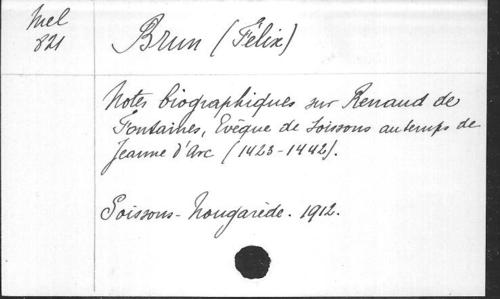 Mel
821
Brun (Félix)
Notes biographiques sur Renaud de
Fontaines, Evêque de Soissons au temps de
Jeanne d'Arc (1423-1442).
Soissons - Nougarède. 1912.